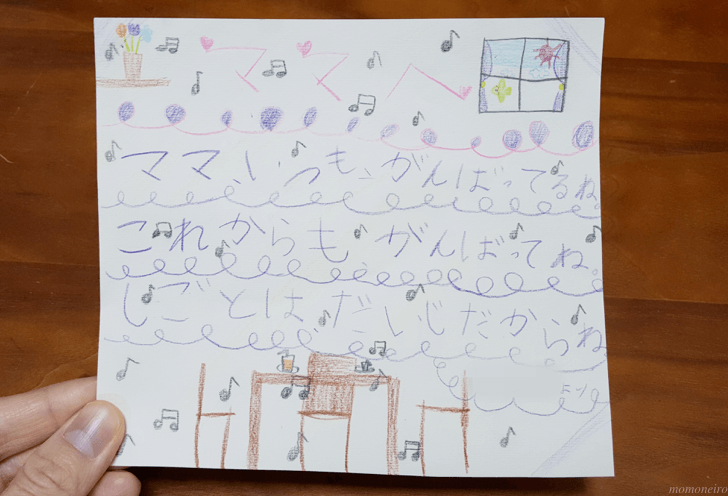 ママへ
ママ、いつも、がんばってるね。
これからもがんばってね。
しごとはだいじだからね
momoneiro